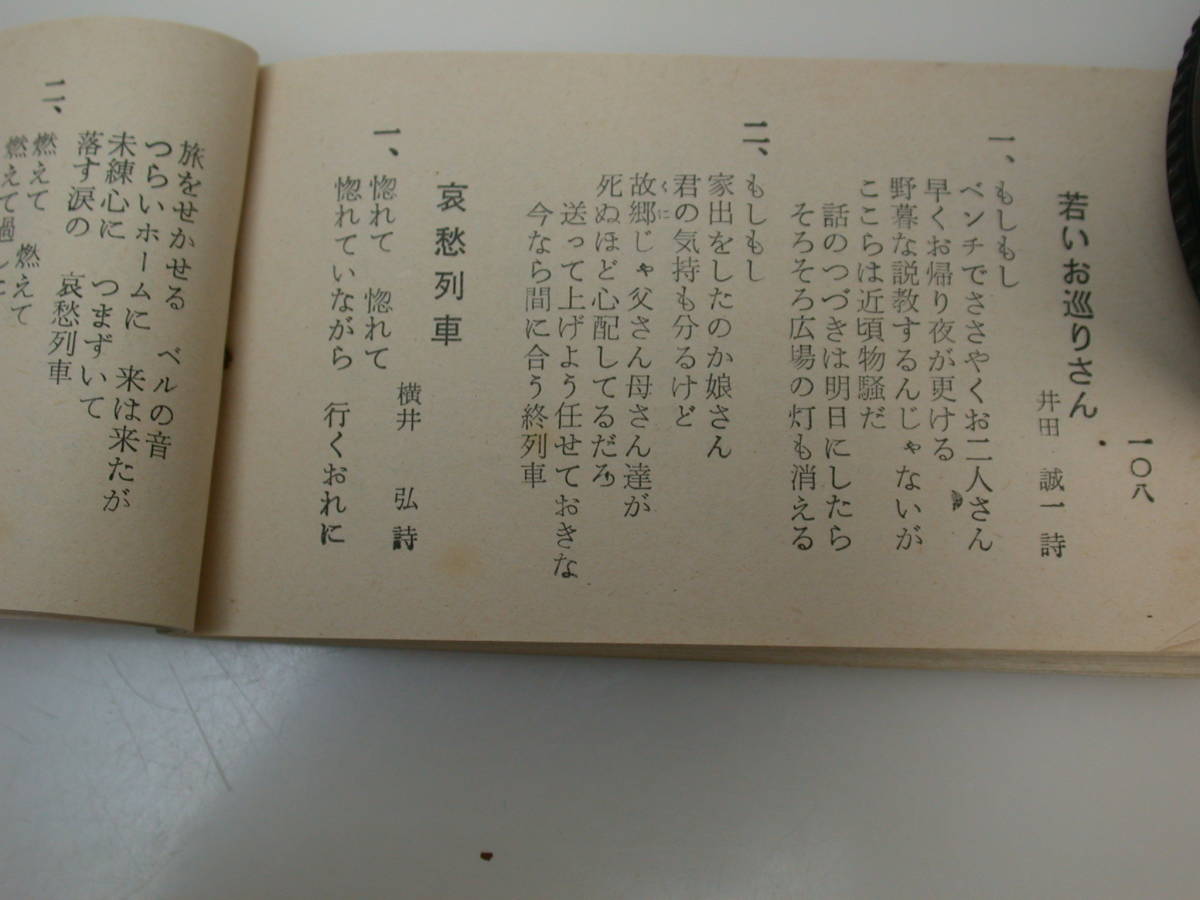 一〇八
若いお巡りさん
井田 誠一 詩
一、もしもし
ベンチでささやくお二人さん
早くお帰り夜が更ける
野暮な説教するんじゃないが
ここらは近頃物騒だ
話のつづきは明日にしたら
そろそろ広場の灯も消える
二、もしもし
家出をしたのか娘さん
君の気持も分るけど
故郷じゃ父さん母さん達が
くに
死ぬほど心配してるだろ
送って上げよう任せておきな
今なら間に合う終列車
哀愁列車
横井 弘 詩
一、惚れて 惚れて
惚れていながら 行くおれに
旅をせかせる ベルの音
つらいホームに 来は来たが
未練心に つまずいて
落す涙の 哀愁列車
二、燃えて 燃えて
燃えて過